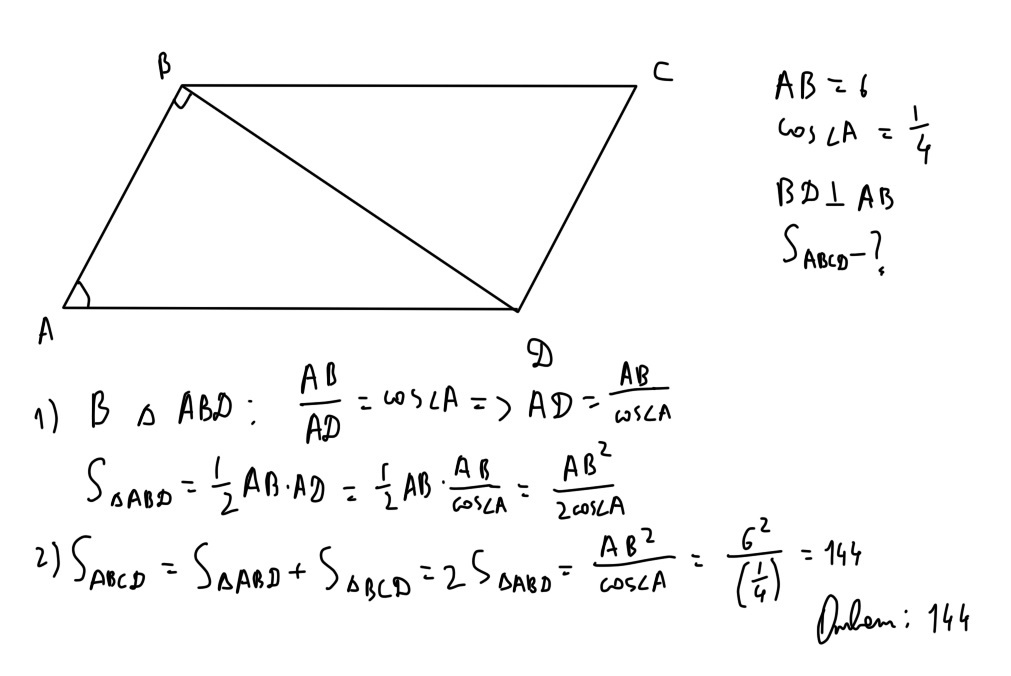 B
C
A
D
AB = 6
cos∠A = 1/4
BD ⊥ AB
S_ABCD - ?
1) В △ ABD: AB/AD = cos∠A => AD = AB/cos∠A
S_△ABD = 1/2 AB·AD = 1/2 AB · AB/cos∠A = AB²/2cos∠A
2) S_ABCD = S_△ABD + S_△BCD = 2 S_△ABD = AB²/cos∠A = 6²/(1/4) = 144
Ответ: 144